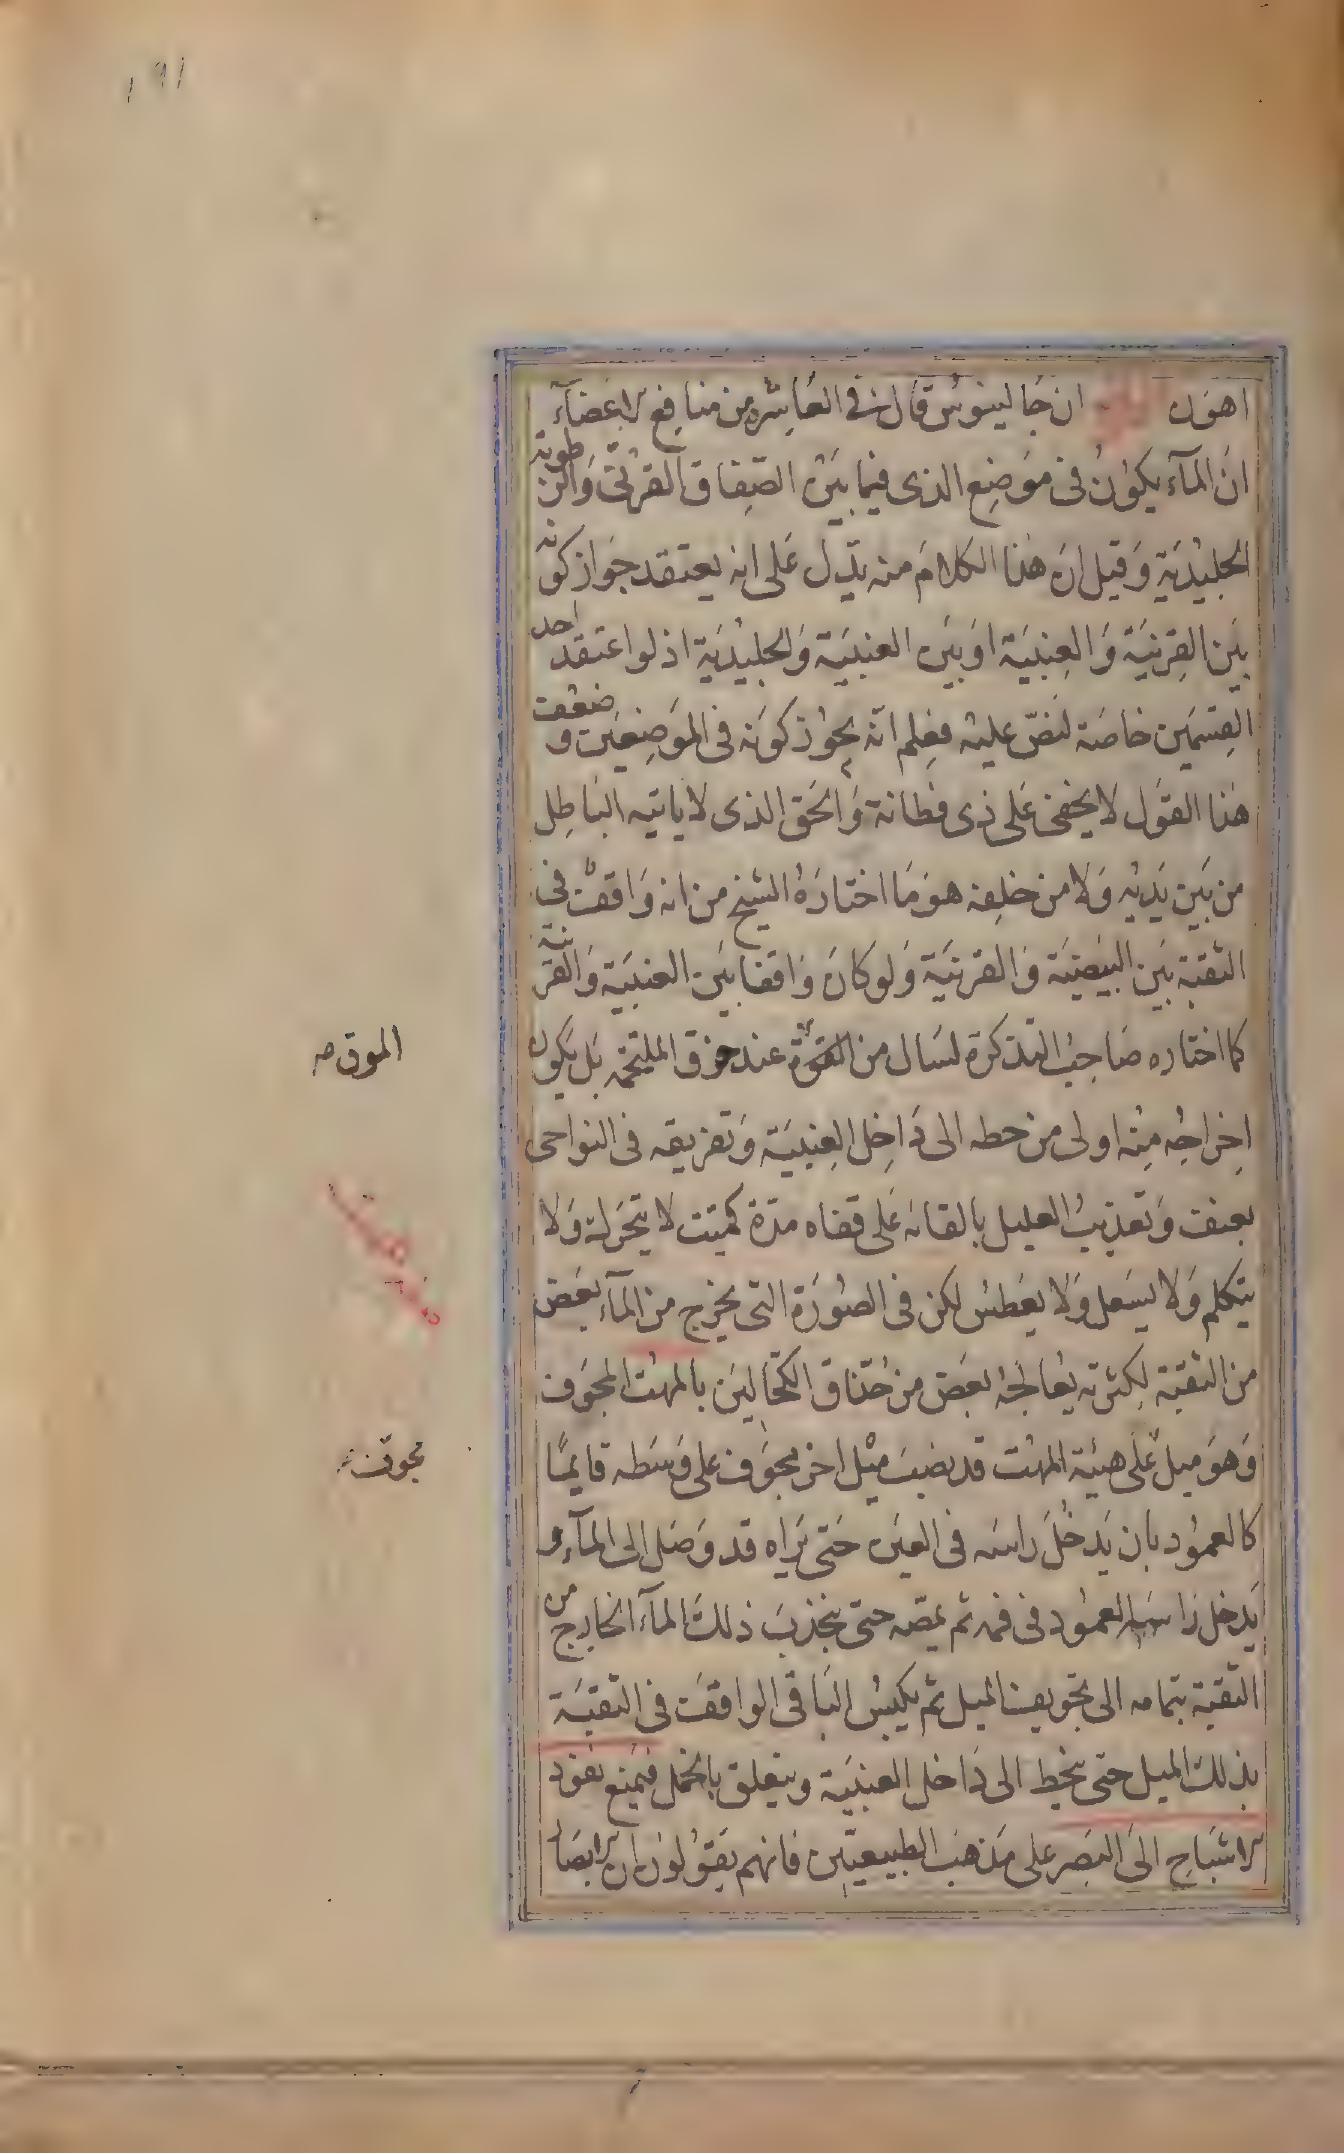 ١٩١
اهون ان جالينوس قال فى العاشره من منافع الاعضآء
ان المآء يكون فى موضع الذى فيما بين الصفاق القرنى والرطوبة
الجليدية وقيل ان هذا الكلام منه يدل على انه يعتقد جواز كونه
بين القرنية والعنبية او بين العنبية والجليدية اذ لو اعتقد احد
القسمين خاصة لنص عليه فعلم انه يجوز كونه فى الموضعين وضعف
هذا القول لا يخفى على ذى فطانة والحق الذى لا ياتيه الباطل
من بين يديه ولا من خلفه هو ما اختاره الشيخ من انه واقف فى
الثقبة بين البيضية والقرنية ولو كان واقفا بين العنبية والقرنية
كما اختاره صاحب التذكرة لسال من عند خرق الملتحمه بل يكون
اخراجه منه اولى من حطه الى داخل العنبية وتفريقه فى النواحى
بعنف وتعذيب العليل بالقائه على قفاه مدة كميت لا يتحرك ولا
يتكلم ولا يسعل ولا يعطس لكن فى الصورة التى يخرج من المآء بعض
من الثقبة لكثرته يعالجه بعض من حذاق الكحالين بالمهت المجوف
وهو ميل على هيئة المهت قد نصب ميل اخر مجوف على وسطه قايمًا
كالعمود بان يدخل راسه فى العين حتى يراه قد وصل الى المآء و
يدخل راس العمود فى فمه ثم يمصه حتى ينجذب ذلك المآء الخارج من
الثقبة بتمامه الى تجويف الميل ثم يكبس الباقى الواقف فى الثقبة
بذلك الميل حتى ينحط الى داخل العنبية ويتعلق بالخمل فيمنع نفوذ
الاشباح الى البصر على مذهب الطبيعيين فانهم يقولون ان الابصار
الموق
مجوف